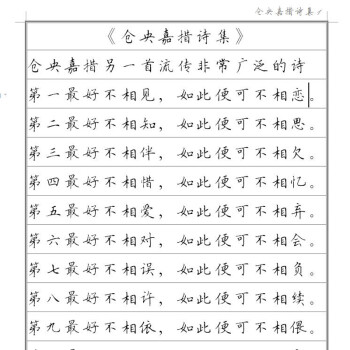 仓央嘉措诗集
《仓央嘉措诗集》
仓央嘉措另一首流传非常广泛的诗
第一最好不相见，如此便可不相恋。
第二最好不相知，如此便可不相思。
第三最好不相伴，如此便可不相欠。
第四最好不相惜，如此便可不相忆。
第五最好不相爱，如此便可不相弃。
第六最好不相对，如此便可不相会。
第七最好不相误，如此便可不相负。
第八最好不相许，如此便可不相续。
第九最好不相依，如此便可不相偎。